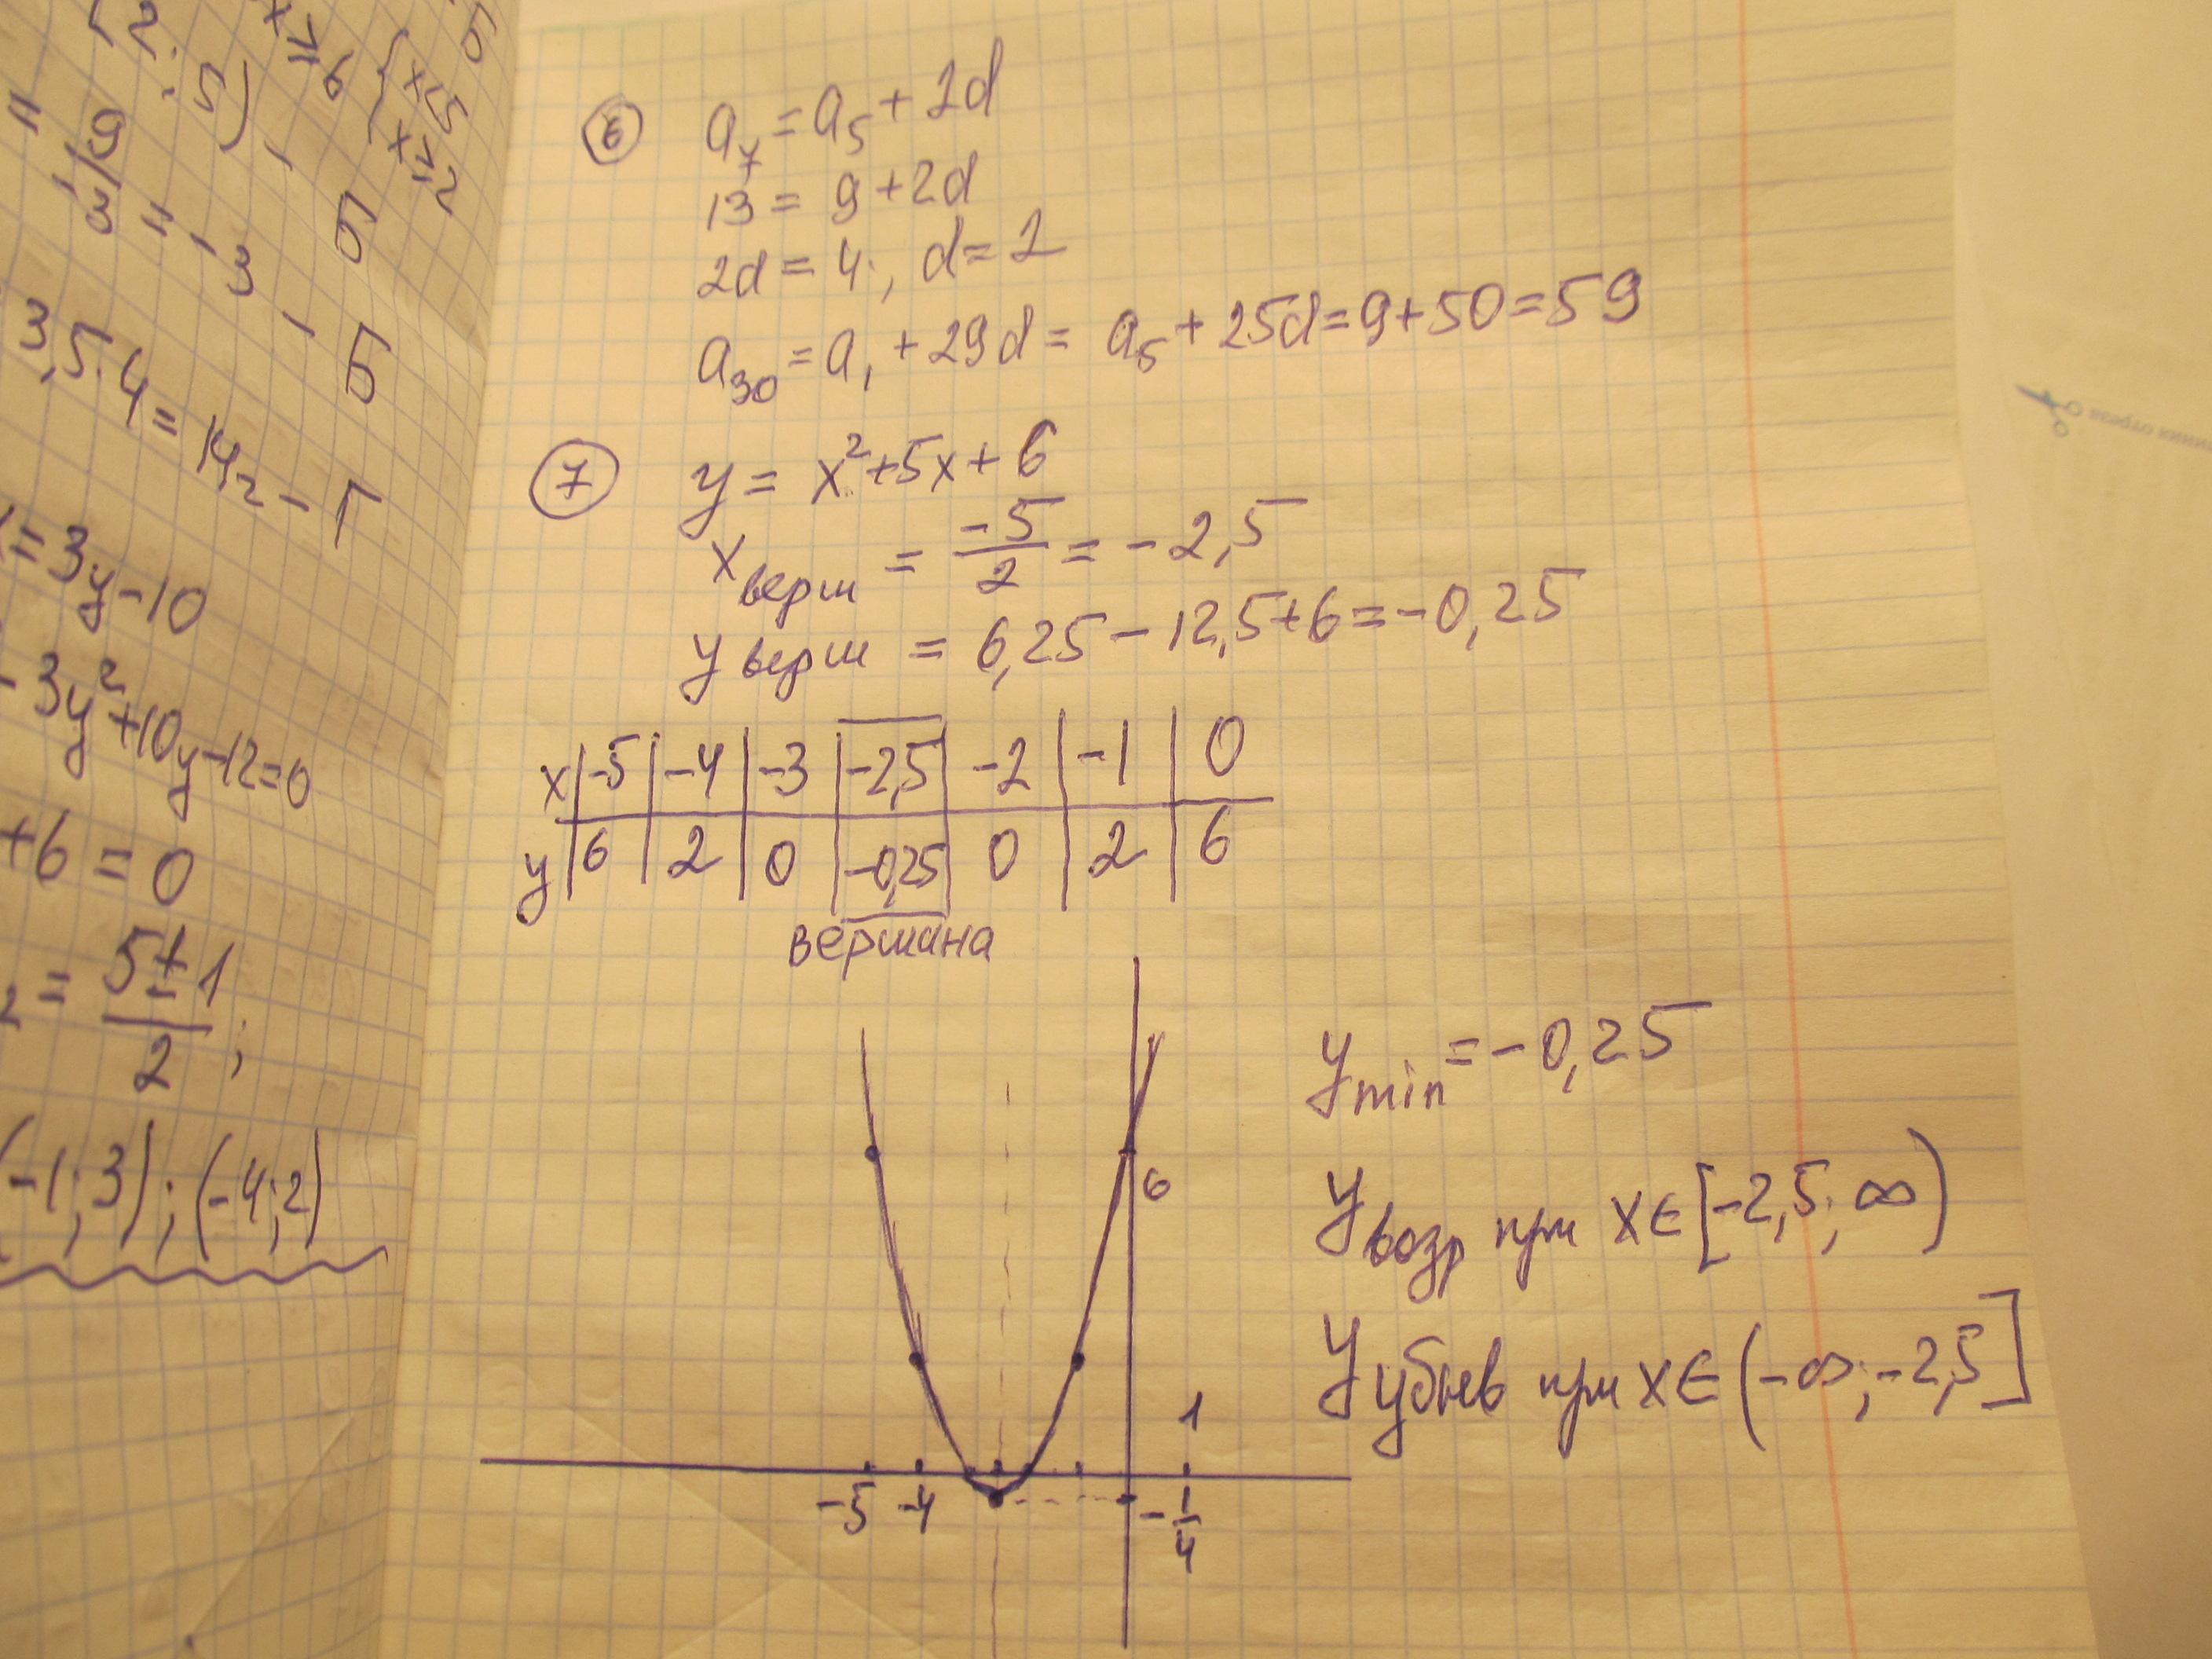 x ≥ 6
x ≤ 5
x ≥ 2
Б
3,5·4=14 2 - Г
=3y-10
3y²+10y-12=0
+6=0
2 = (5±1)/2;
(-1;3);(-4;2)
⑥ a₇=a₅+2d
13=9+2d
2d=4; d=2
a₃₀=a₁+29d=a₅+25d=9+50=59
⑦ y=x²+5x+6
x верш = -5/2 = -2,5
y верш = 6,25-12,5+6=-0,25
x | -5 | -4 | -3 | -2,5 | -2 | -1 | 0
y | 6 | 2 | 0 | -0,25 | 0 | 2 | 6
вершина
y min = -0,25
6
y возр при x∈[-2,5; ∞)
y убыв при x∈(-∞;-2,5]
1
-5 -4 -1/4